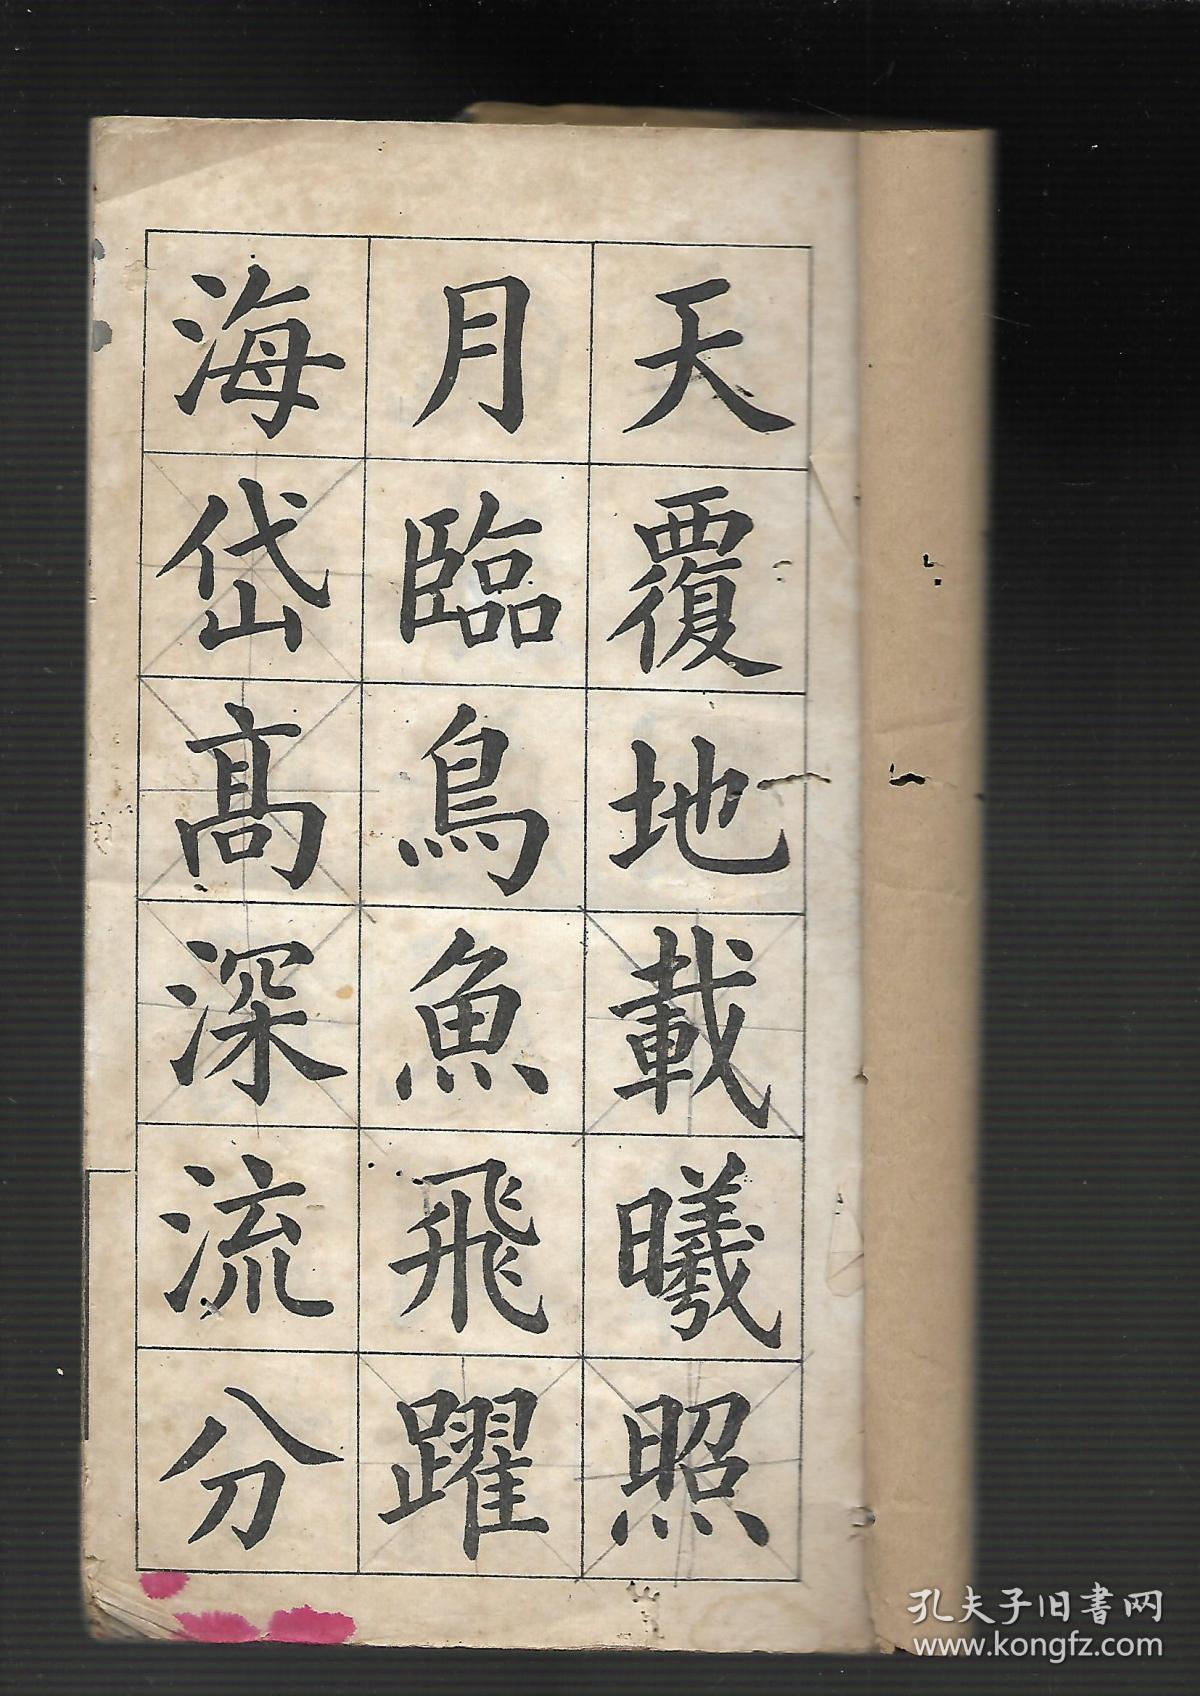 天覆地載曦照
月臨鳥魚飛躍
海岱高深流分
孔夫子旧書网
www.kongfz.com